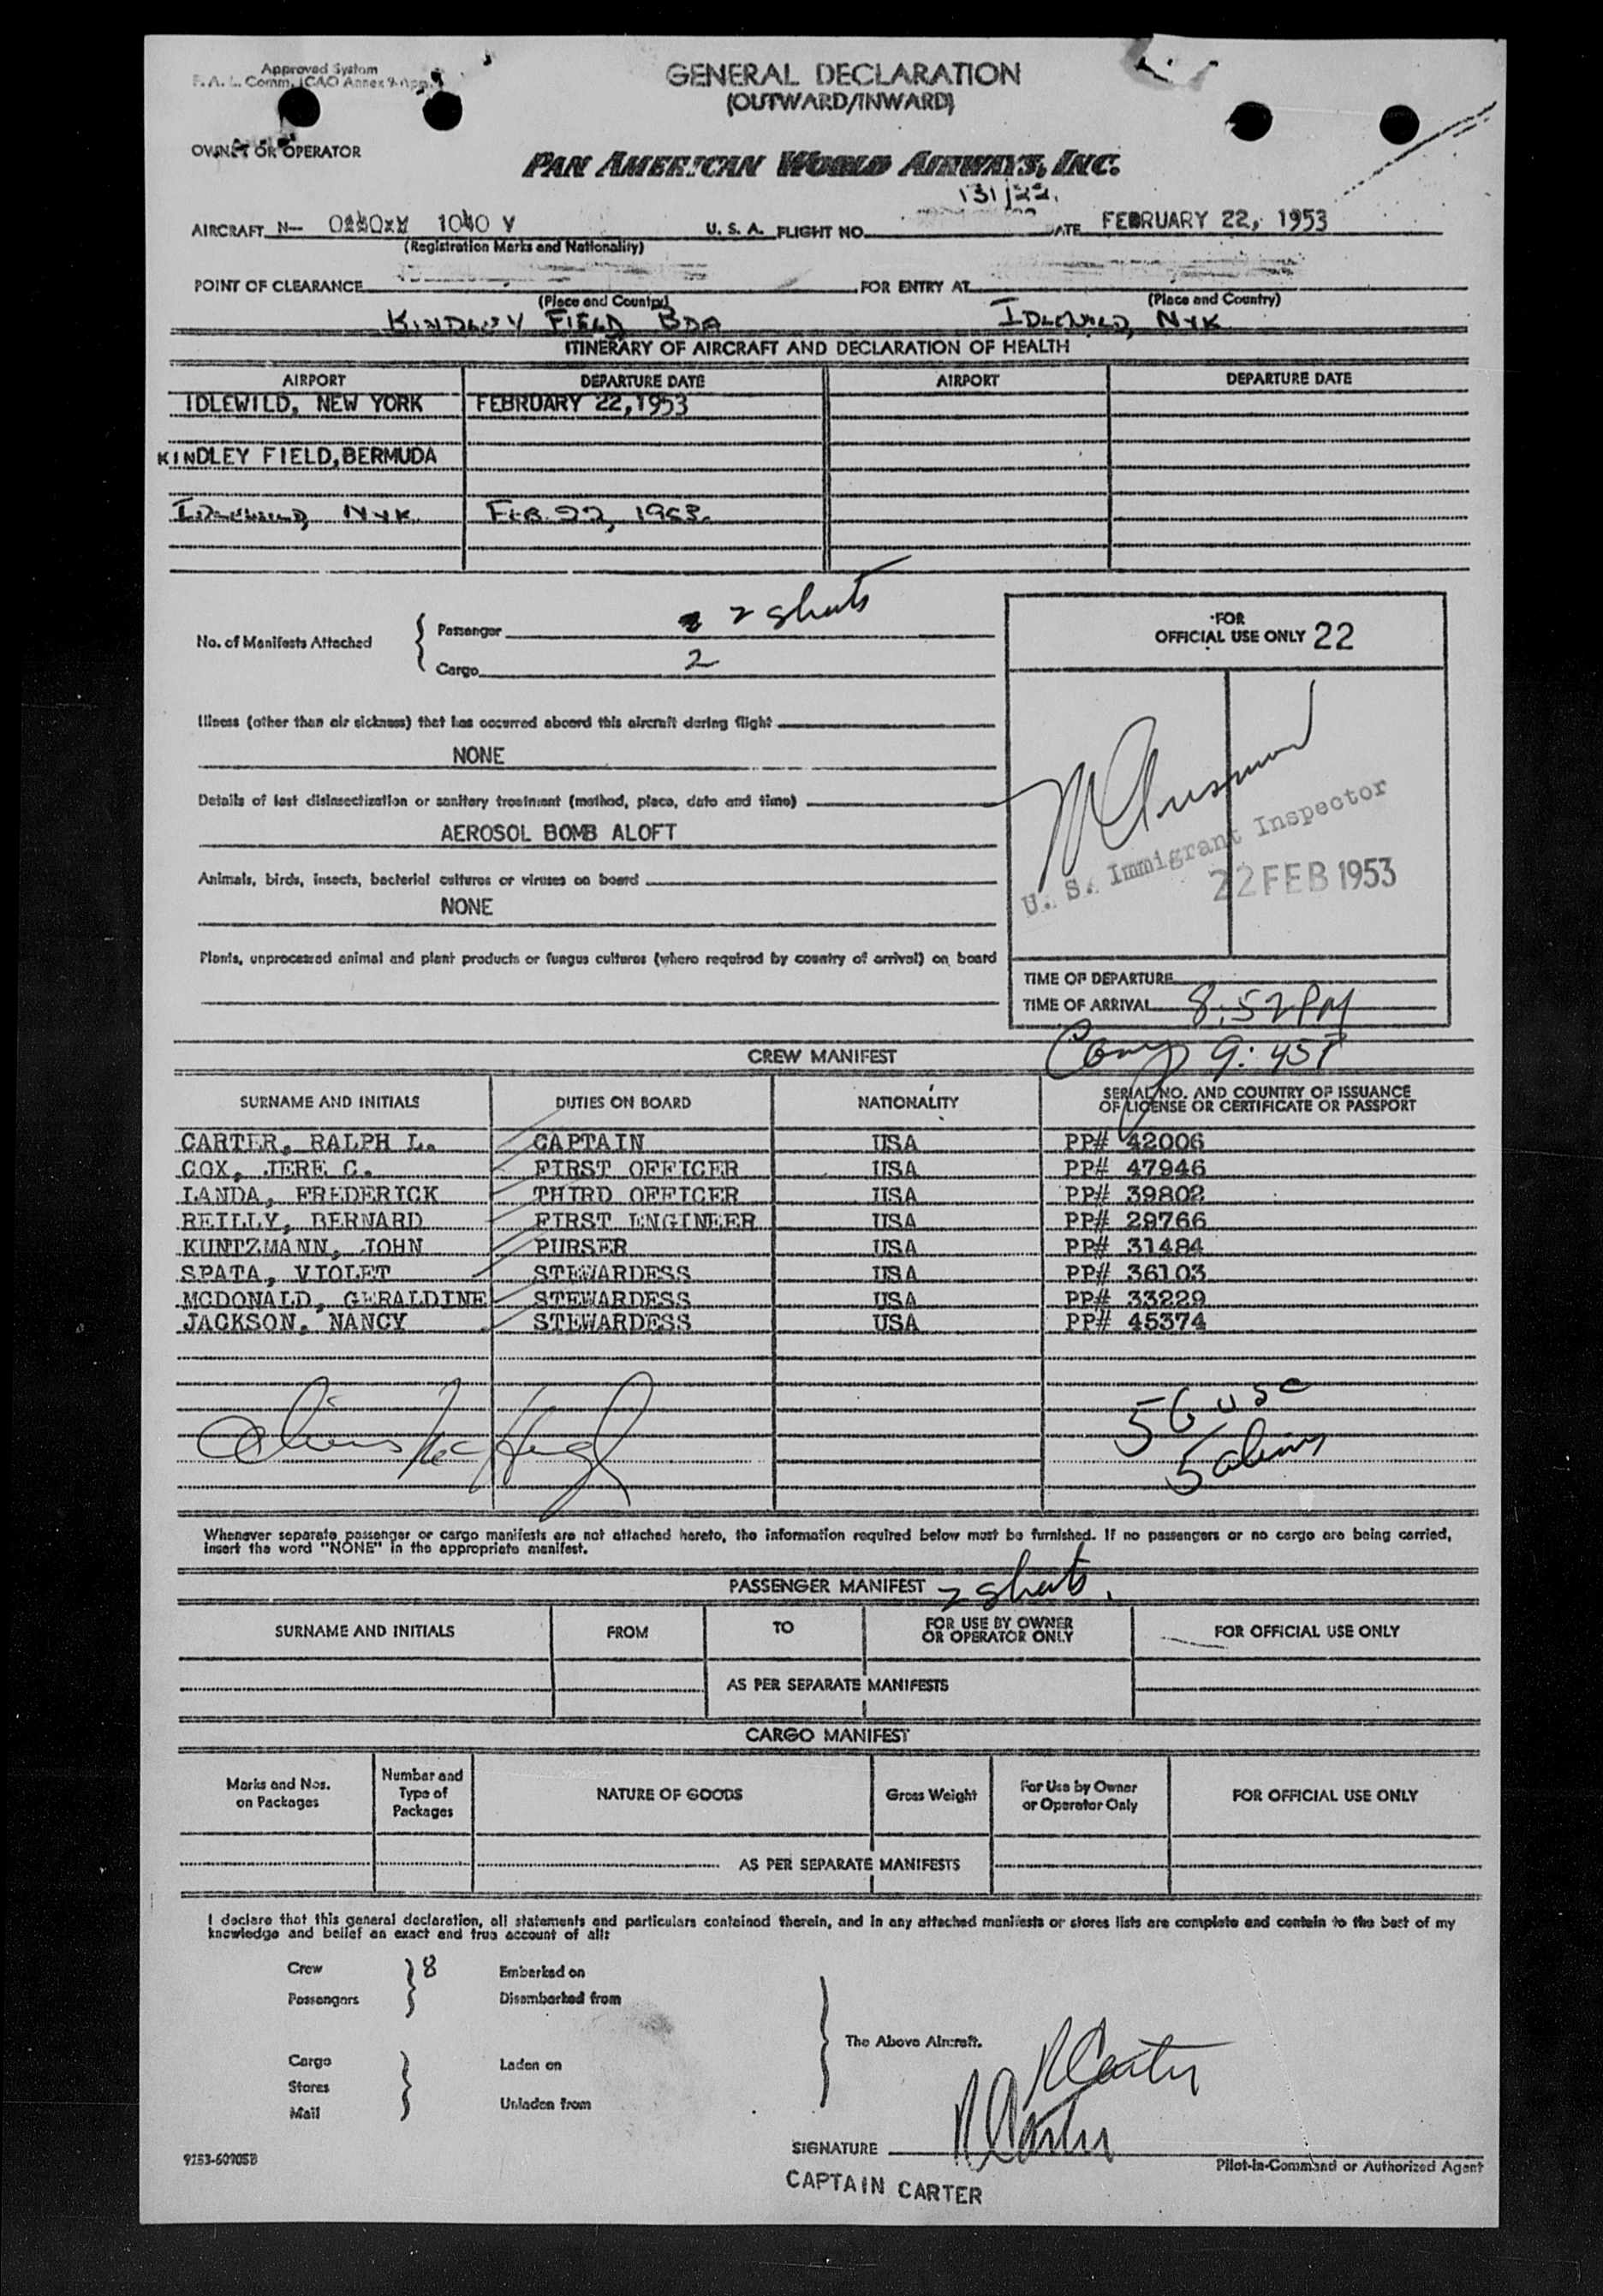 Approved System
F. A. L. Comm. ICAO Annex 9 App.
GENERAL DECLARATION
(OUTWARD/INWARD)
OWNER OR OPERATOR
PAN AMERICAN WORLD AIRWAYS, INC.
131/22.
AIRCRAFT N— 1040 V U. S. A. FLIGHT NO. DATE FEBRUARY 22, 1953
(Registration Marks and Nationality)
POINT OF CLEARANCE FOR ENTRY AT
(Place and Country) (Place and Country)
KINDLEY FIELD, BDA IDLEWILD, NYK
ITINERARY OF AIRCRAFT AND DECLARATION OF HEALTH
AIRPORT DEPARTURE DATE AIRPORT DEPARTURE DATE
IDLEWILD, NEW YORK FEBRUARY 22,1953
KINDLEY FIELD,BERMUDA
IDLEWILD, NYK. FEB. 22, 1953.
No. of Manifests Attached
Passenger 2 sheets
Cargo 2
FOR
OFFICIAL USE ONLY 22
Illness (other than air sickness) that has occurred aboard this aircraft during flight
NONE
Details of last disinsectization or sanitary treatment (method, place, date and time)
AEROSOL BOMB ALOFT
U. S. Immigrant Inspector
22 FEB 1953
Animals, birds, insects, bacterial cultures or viruses on board
NONE
Plants, unprocessed animal and plant products or fungus cultures (where required by country of arrival) on board
TIME OF DEPARTURE
TIME OF ARRIVAL 8:52 PM
Comp 9:45P
CREW MANIFEST
SURNAME AND INITIALS DUTIES ON BOARD NATIONALITY SERIAL NO. AND COUNTRY OF ISSUANCE
OF LICENSE OR CERTIFICATE OR PASSPORT
CARTER, RALPH L. CAPTAIN USA PP# 42006
COX, JERE C. FIRST OFFICER USA PP# 47946
LANDA, FREDERICK THIRD OFFICER USA PP# 39802
REILLY, BERNARD FIRST ENGINEER USA PP# 29766
KUNTZMANN, JOHN PURSER USA PP# 31484
SPATA, VIOLET STEWARDESS USA PP# 36103
MCDONALD, GERALDINE STEWARDESS USA PP# 33229
JACKSON, NANCY STEWARDESS USA PP# 45374
56 USC
5 aliens
Whenever separate passenger or cargo manifests are not attached hereto, the information required below must be furnished. If no passengers or no cargo are being carried,
insert the word "NONE" in the appropriate manifest.
PASSENGER MANIFEST 2 sheets.
SURNAME AND INITIALS FROM TO FOR USE BY OWNER
OR OPERATOR ONLY FOR OFFICIAL USE ONLY
AS PER SEPARATE MANIFESTS
CARGO MANIFEST
Marks and Nos.
on Packages
Number and
Type of
Packages
NATURE OF GOODS
Gross Weight
For Use by Owner
or Operator Only
FOR OFFICIAL USE ONLY
AS PER SEPARATE MANIFESTS
I declare that this general declaration, all statements and particulars contained therein, and in any attached manifests or stores lists are complete and contain to the best of my
knowledge and belief an exact and true account of all:
Crew 8 Embarked on
Passengers Disembarked from
The Above Aircraft.
Cargo Laden on
Stores
Mail Unladen from
R Carter
R Carter
SIGNATURE
9153-60905B
Pilot-in-Command or Authorized Agent
CAPTAIN CARTER